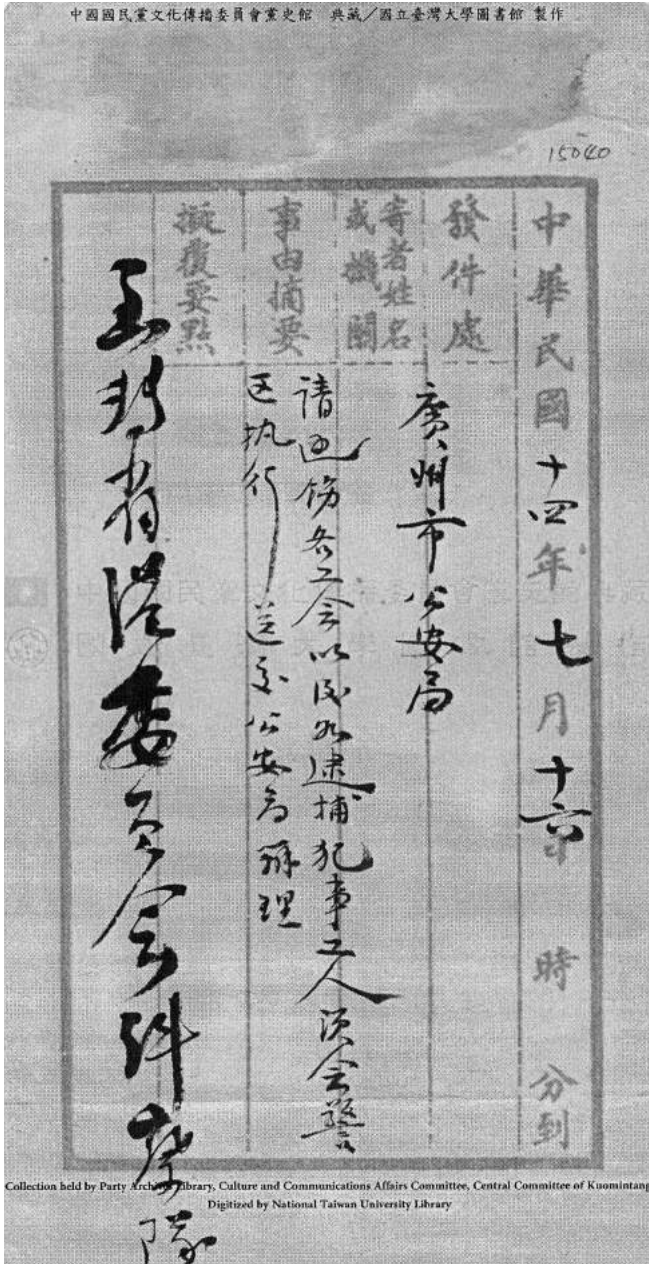 中國國民黨文化傳播委員會黨史館　典藏／國立臺灣大學圖書館 製作
15040
中華民國十四年七月十六日　時　分到
發件處
廣州市公安局
寄者姓名
或機關
事由摘要
請通飭各工会以後如逮捕犯事工人須会警
区执行送交公安局辦理
擬覆要點
函特省港委員会糾察隊
Collection held by Party Archives Library, Culture and Communications Affairs Committee, Central Committee of Kuomintang
Digitized by National Taiwan University Library